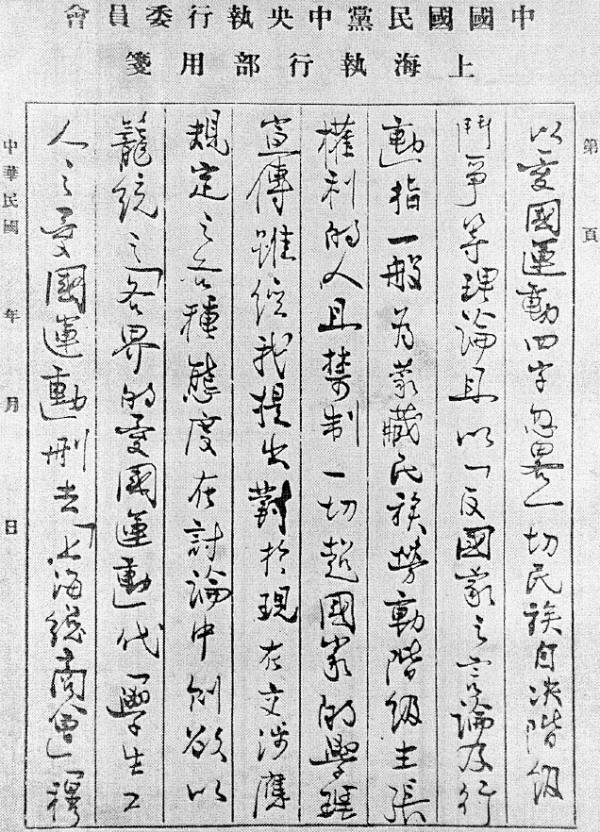 中國國民黨中央執行委員會
上海執行部用箋
第 頁
以愛國運動四字忽畧一切民族自决階級
鬥爭等理論且以「反國家之言論及行
動」指一般为蒙藏民族勞動階級主張
權利的人且禁制一切超國家的學理
宣傳雖经我提出對於現在交涉應
規定之各種態度在討論中则欲以
籠統之「各界的愛國運動」代「學生工
人之愛國運動」刪去「上海總商會」
中華民國 年 月 日